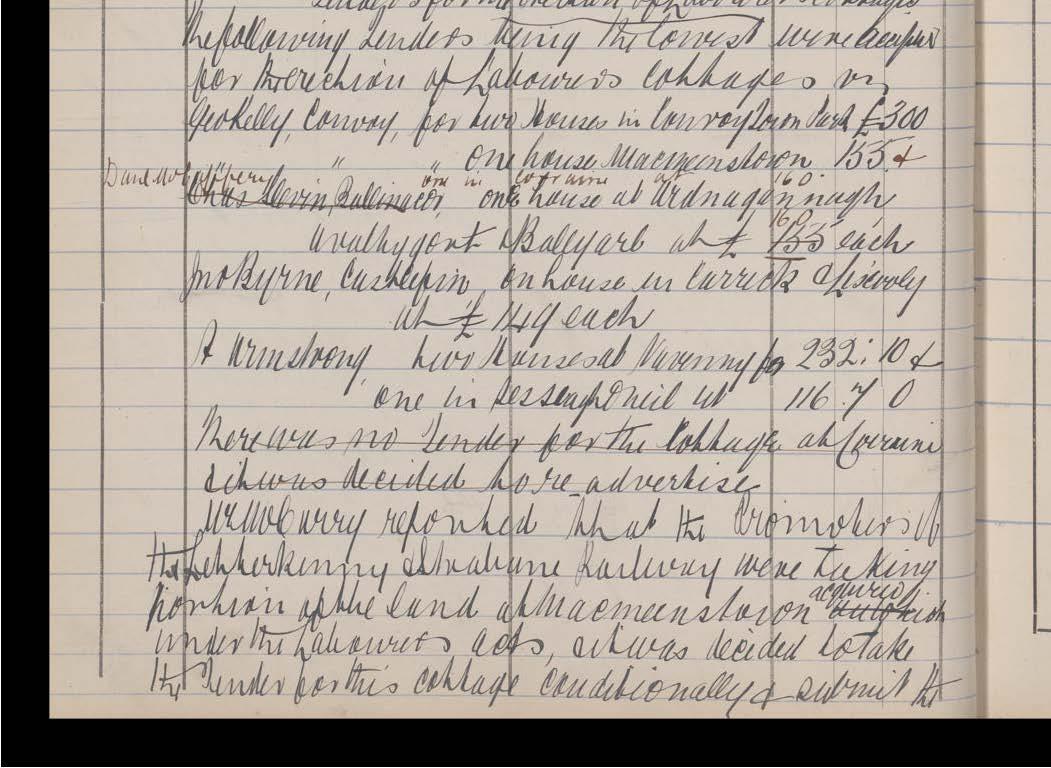 Tenders for the erection of Labourers Cottages
The following Tenders being the lowest were accepted
for the erection of Labourers Cottages viz
Geo Kelly, Convoy, for two Houses in Convoy Town Park £300
" " one house Macmeenstown 155 &
Danl Mc one in Corraine at 160
Chas Slevin, Ballinacor, one house at Ardnagannagh
& Ballyarl at £ 160 155 each
Jno Byrne, Castlefin, one house in Carrick & Liscooly
at £ 149 each
A Armstrong two Houses at Navenny for 232: 10 &
one in Sessagh O'Neil at 116 . 7 0
There was no Tender for the Cottage at Corraine
& it was decided to re-advertise
Mr McCurry reported that the Promoters of
the Letterkenny & Strabane Railway were taking
portion of the land at Macmeenstown acquired
under the Labourers acts, & it was decided to take
the Tender for this cottage conditionally & submit the